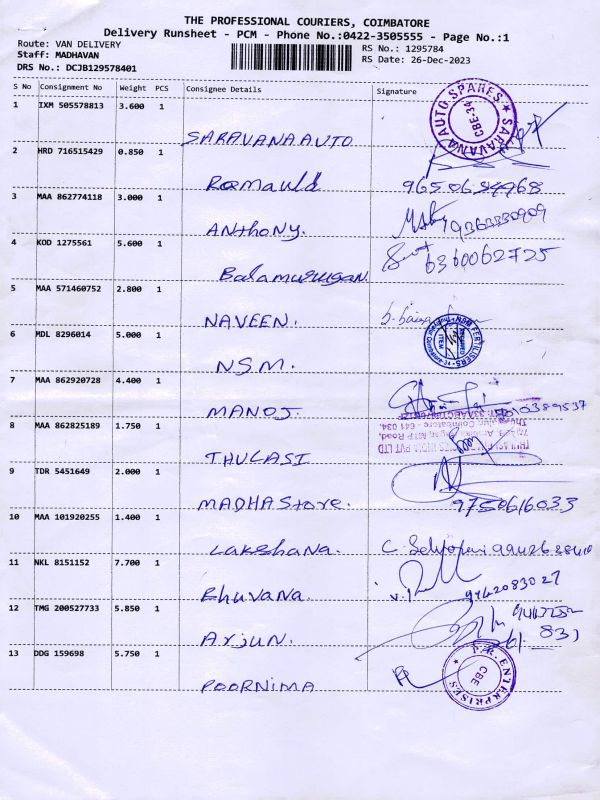 THE PROFESSIONAL COURIERS, COIMBATORE
Delivery Runsheet - PCM - Phone No.:0422-3505555 - Page No.:1
Route: VAN DELIVERY
RS No.: 1295784
Staff: MADHAVAN
RS Date: 26-Dec-2023
DRS No.: DCJB129578401
S No Consignment No Weight PCS Consignee Details Signature
1 IXM 505578813 3.600 1
SARAVANA AUTO
SARAVANA AUTO SPARES
CBE-34
2 HRD 716515429 0.850 1
Romauld
3 MAA 862774118 3.000 1
ANthoNy.
4 KOD 1275561 5.600 1
Balamurugan. 6360062725
5 MAA 571460752 2.800 1
NAVEEN.
6 MDL 8296014 5.000 1
NSM.
NSM FERTILISERS
7 MAA 862920728 4.400 1
MANOJ.
8 MAA 862825189 1.750 1
THULASI
Coimbatore - 641 034.
9 TDR 5451649 2.000 1
MADHA Store. 9750616033
10 MAA 101920255 1.400 1
Lakshana.
11 NKL 8151152 7.700 1
Bhuvana. 9442083027
12 TMG 200527733 5.850 1
Arjun.
13 DDG 159698 5.750 1
POORNIMA
ENTERPRISES
CBE